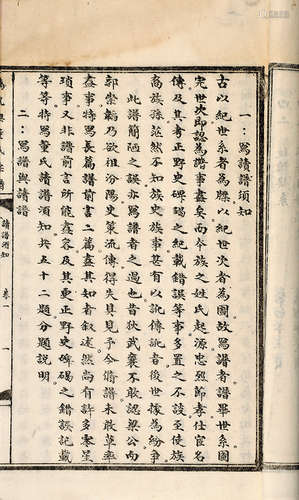 一：寫讀譜須知
古以紀世系者為牒以紀世次者為圖故寫譜者畢世系圖
完世次即認為譜事盡矣而於族之姓氏起源忠烈節孝仕宦名
傳及其考正野史碑碣之紀載錯誤等事多置之不談至使族
裔族孫茫然不知族史族事甚有以訛傳訛者後世據為紛爭
此譜簡陋之誤亦寫譜者之過也昔狄武襄不敢認梁公而
郭崇韜乃欲祖汾陽史策流傳得失具見予今脩譜未敢草率
盡事特寫長篇譜前言二篇盡其知者叙述然尚有許多零星
瑣事又非譜前言所能盡容及其重正野史碑碣之錯誤記載
等等特寫董氏讀譜須知共五十二題分題說明
二：寫譜與讀譜
讀譜須知
卷一
一